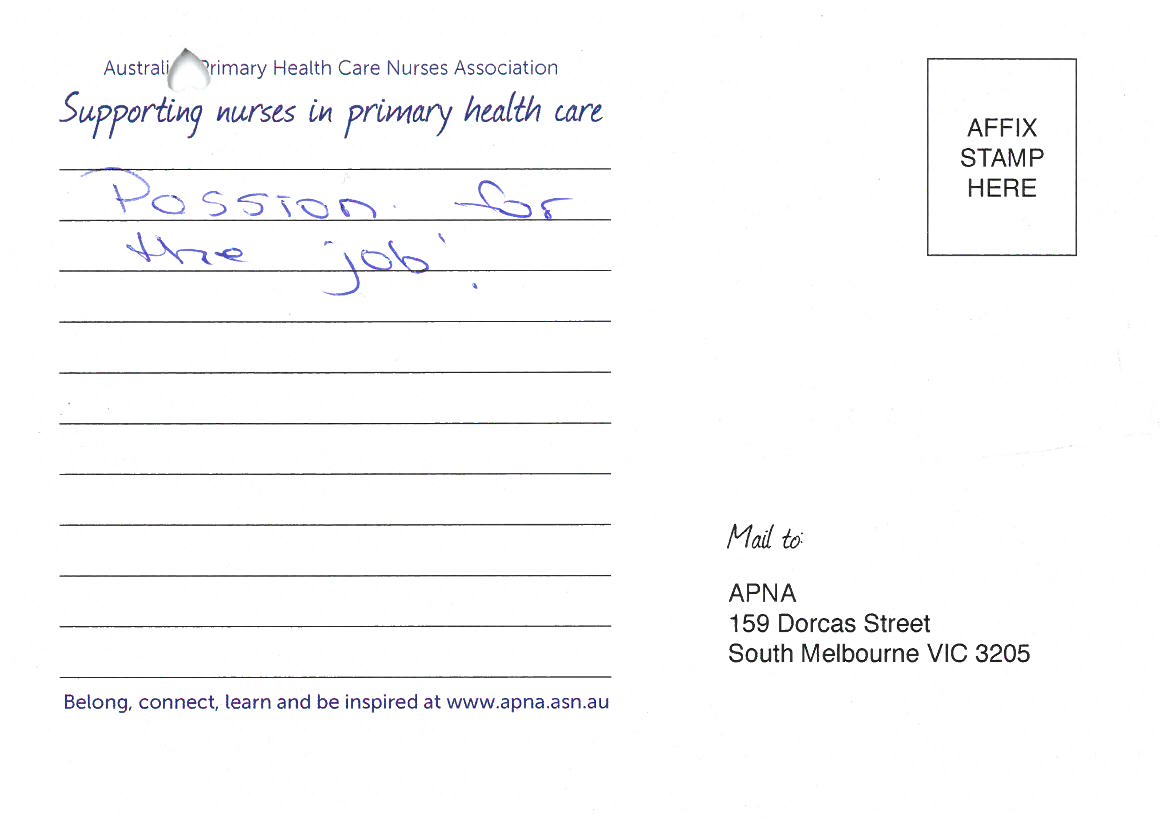 Australi Primary Health Care Nurses Association
Supporting nurses in primary health care
Passion for
the 'job'.
Belong, connect, learn and be inspired at www.apna.asn.au
AFFIX
STAMP
HERE
Mail to:
APNA
159 Dorcas Street
South Melbourne VIC 3205